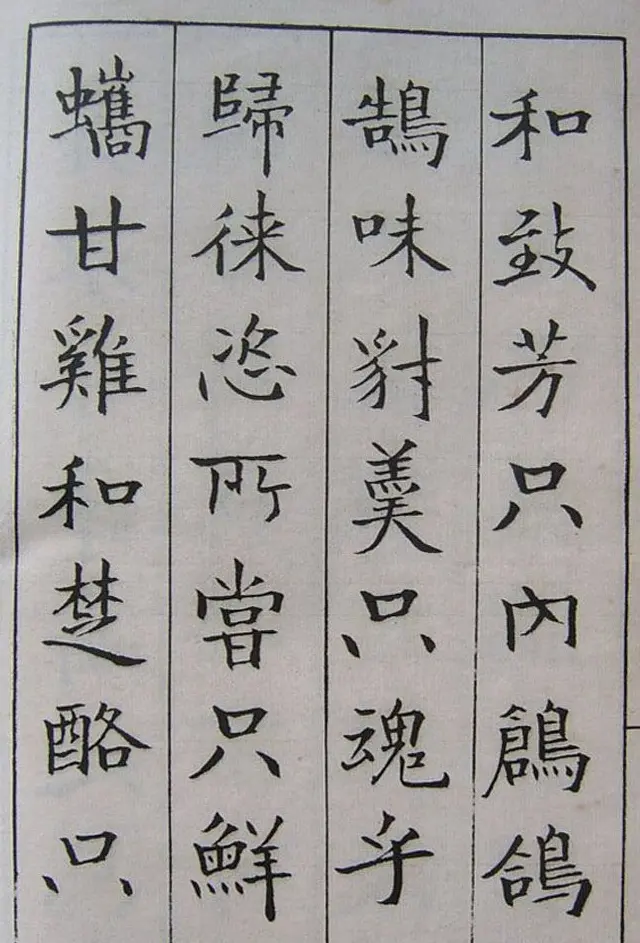 和致芳只內鶬鴿
鵠味豺羹只魂乎
歸徠恣所嘗只鮮
蠵甘雞和楚酪只